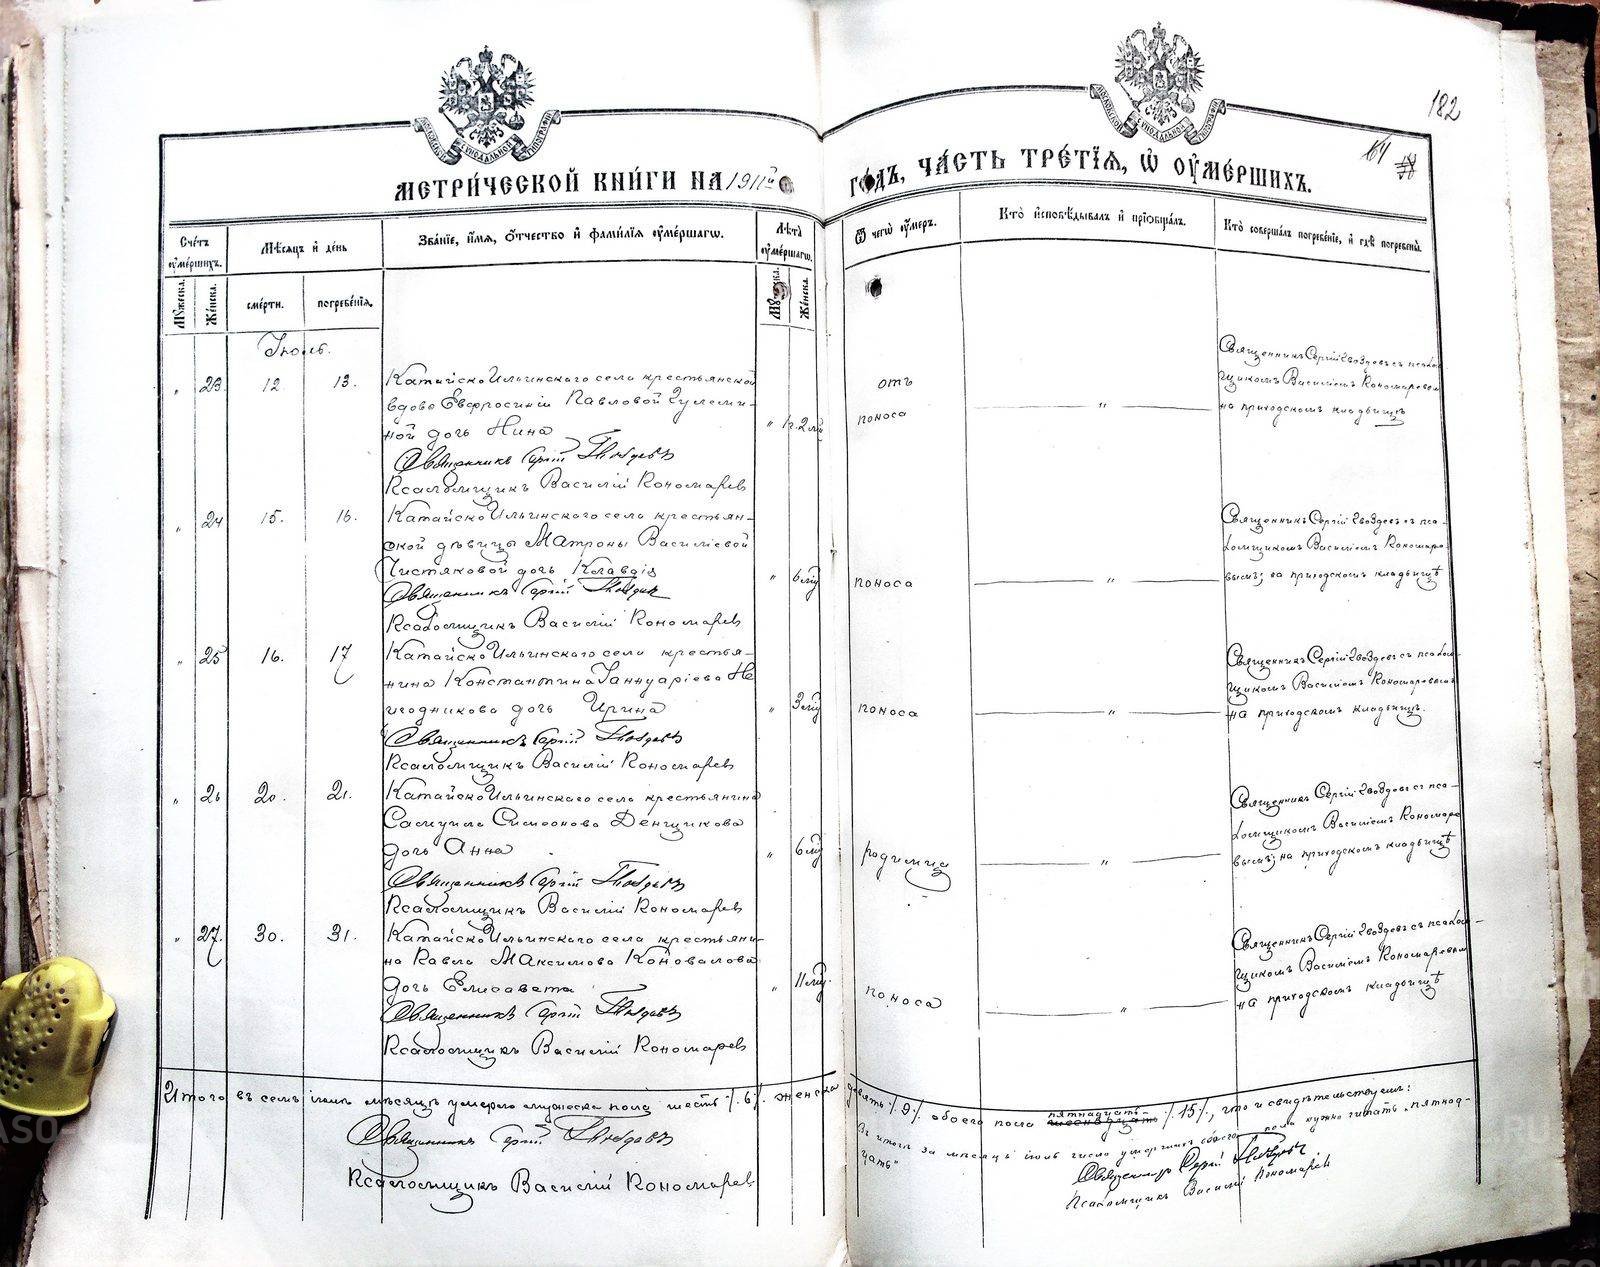 182
64
МЕТРИ́ЧЕСКОЙ КНИ́ГИ НА 1911й
ГО́ДЪ, ЧА́СТЬ ТРЕ́ТЇѦ, Ѿ ОУ҆МЕ́РШИХЪ.
Сче́тъ оу҆ме́ршихъ.
Мѣ́сѧцъ и҆ де́нь
Зва́нїе, и҆́мѧ, ѻ҆́тчество и҆ фамѵ́лїѧ оу҆ме́ршагѡ.
Лѣ́та оу҆ме́ршагѡ.
Ѿ чегѡ̀ оу҆́меръ.
Кто̀ и҆сповѣ́дывалъ и҆ прїѻбща́лъ.
Кто̀ соверша́лъ погребе́нїе, и҆ гдѣ̀ погребены̀.
Мꙋ́жеска.
Же́нска.
сме́рти.
погребе́нїѧ.
Мꙋ́жеска.
Же́нска.
Іюль.
" 23. 12. 13. Катайско Ильинскаго села крестьянской
вдово Евфросиніи Павловой Гулеми-
ной дочь Нина
Священникъ Сергій Гвоздевъ
Псаломщикъ Василій Пономарев
" 1 г. 2 мц
отъ
поноса
"
Священникъ Сергій Гвоздевъ с псалом
щикомъ Василіемъ Пономаревым
на приходскомъ кладбищѣ
" 24 15. 16. Катайско Ильинскаго села крестьян-
ской дѣвицы Матроны Василіевой
Чистяковой дочь Клавдія
Священникъ Сергій Гвоздевъ
Псаломщикъ Василій Пономарев
" 6 мц
поноса
"
Священникъ Сергій Гвоздевъ с пса-
ломщикомъ Василіемъ Пономаре-
вымъ на приходскомъ кладбищѣ
" 25 16. 17 Катайско Ильинскаго села крестья-
нина Константина Іаннуаріева Не
игодникова дочь Ирина
Священникъ Сергій Гвоздевъ
Псаломщикъ Василій Пономарев
" 3 мц
поноса
"
Священникъ Сергій Гвоздевъ с псалом-
щикомъ Василіемъ Пономаревымъ
на приходскомъ кладбищѣ.
" 26 20. 21. Катайско Ильинскаго села крестьянина
Самуила Симеонова Денщикова
дочь Анна
Священникъ Сергій Гвоздевъ
Псаломщикъ Василій Пономарев
" 6 мц
родимца
"
Священникъ Сергій Гвоздевъ с пса-
ломщикомъ Василіемъ Пономаре
вымъ на приходскомъ кладбищѣ
" 27. 30. 31. Катайско Ильинскаго села крестьяни-
на Павла Максимова Коновалова
дочь Елисавета
Священникъ Сергій Гвоздевъ
Псаломщикъ Василій Пономарев
" 11 мц.
поноса
"
Священникъ Сергій Гвоздевъ с псалом-
щикомъ Василіемъ Пономаревым
на приходскомъ кладбищѣ
Итого въ семъ іюлѣ мѣсяцѣ умерло мужеска пола шесть /.6/. женска девять /.9/. обоего пола пятнадцать /.15/, что и свидѣтельствуем:
Священникъ Сергій Гвоздевъ
Псаломщикъ Василій Пономарев
Въ итогѣ за мѣсяцъ іюль число умершихъ обоего пола нужно читать „пятнад-
цать"
Священникъ Сергій Гвоздевъ
Псаломщикъ Василій Пономарев